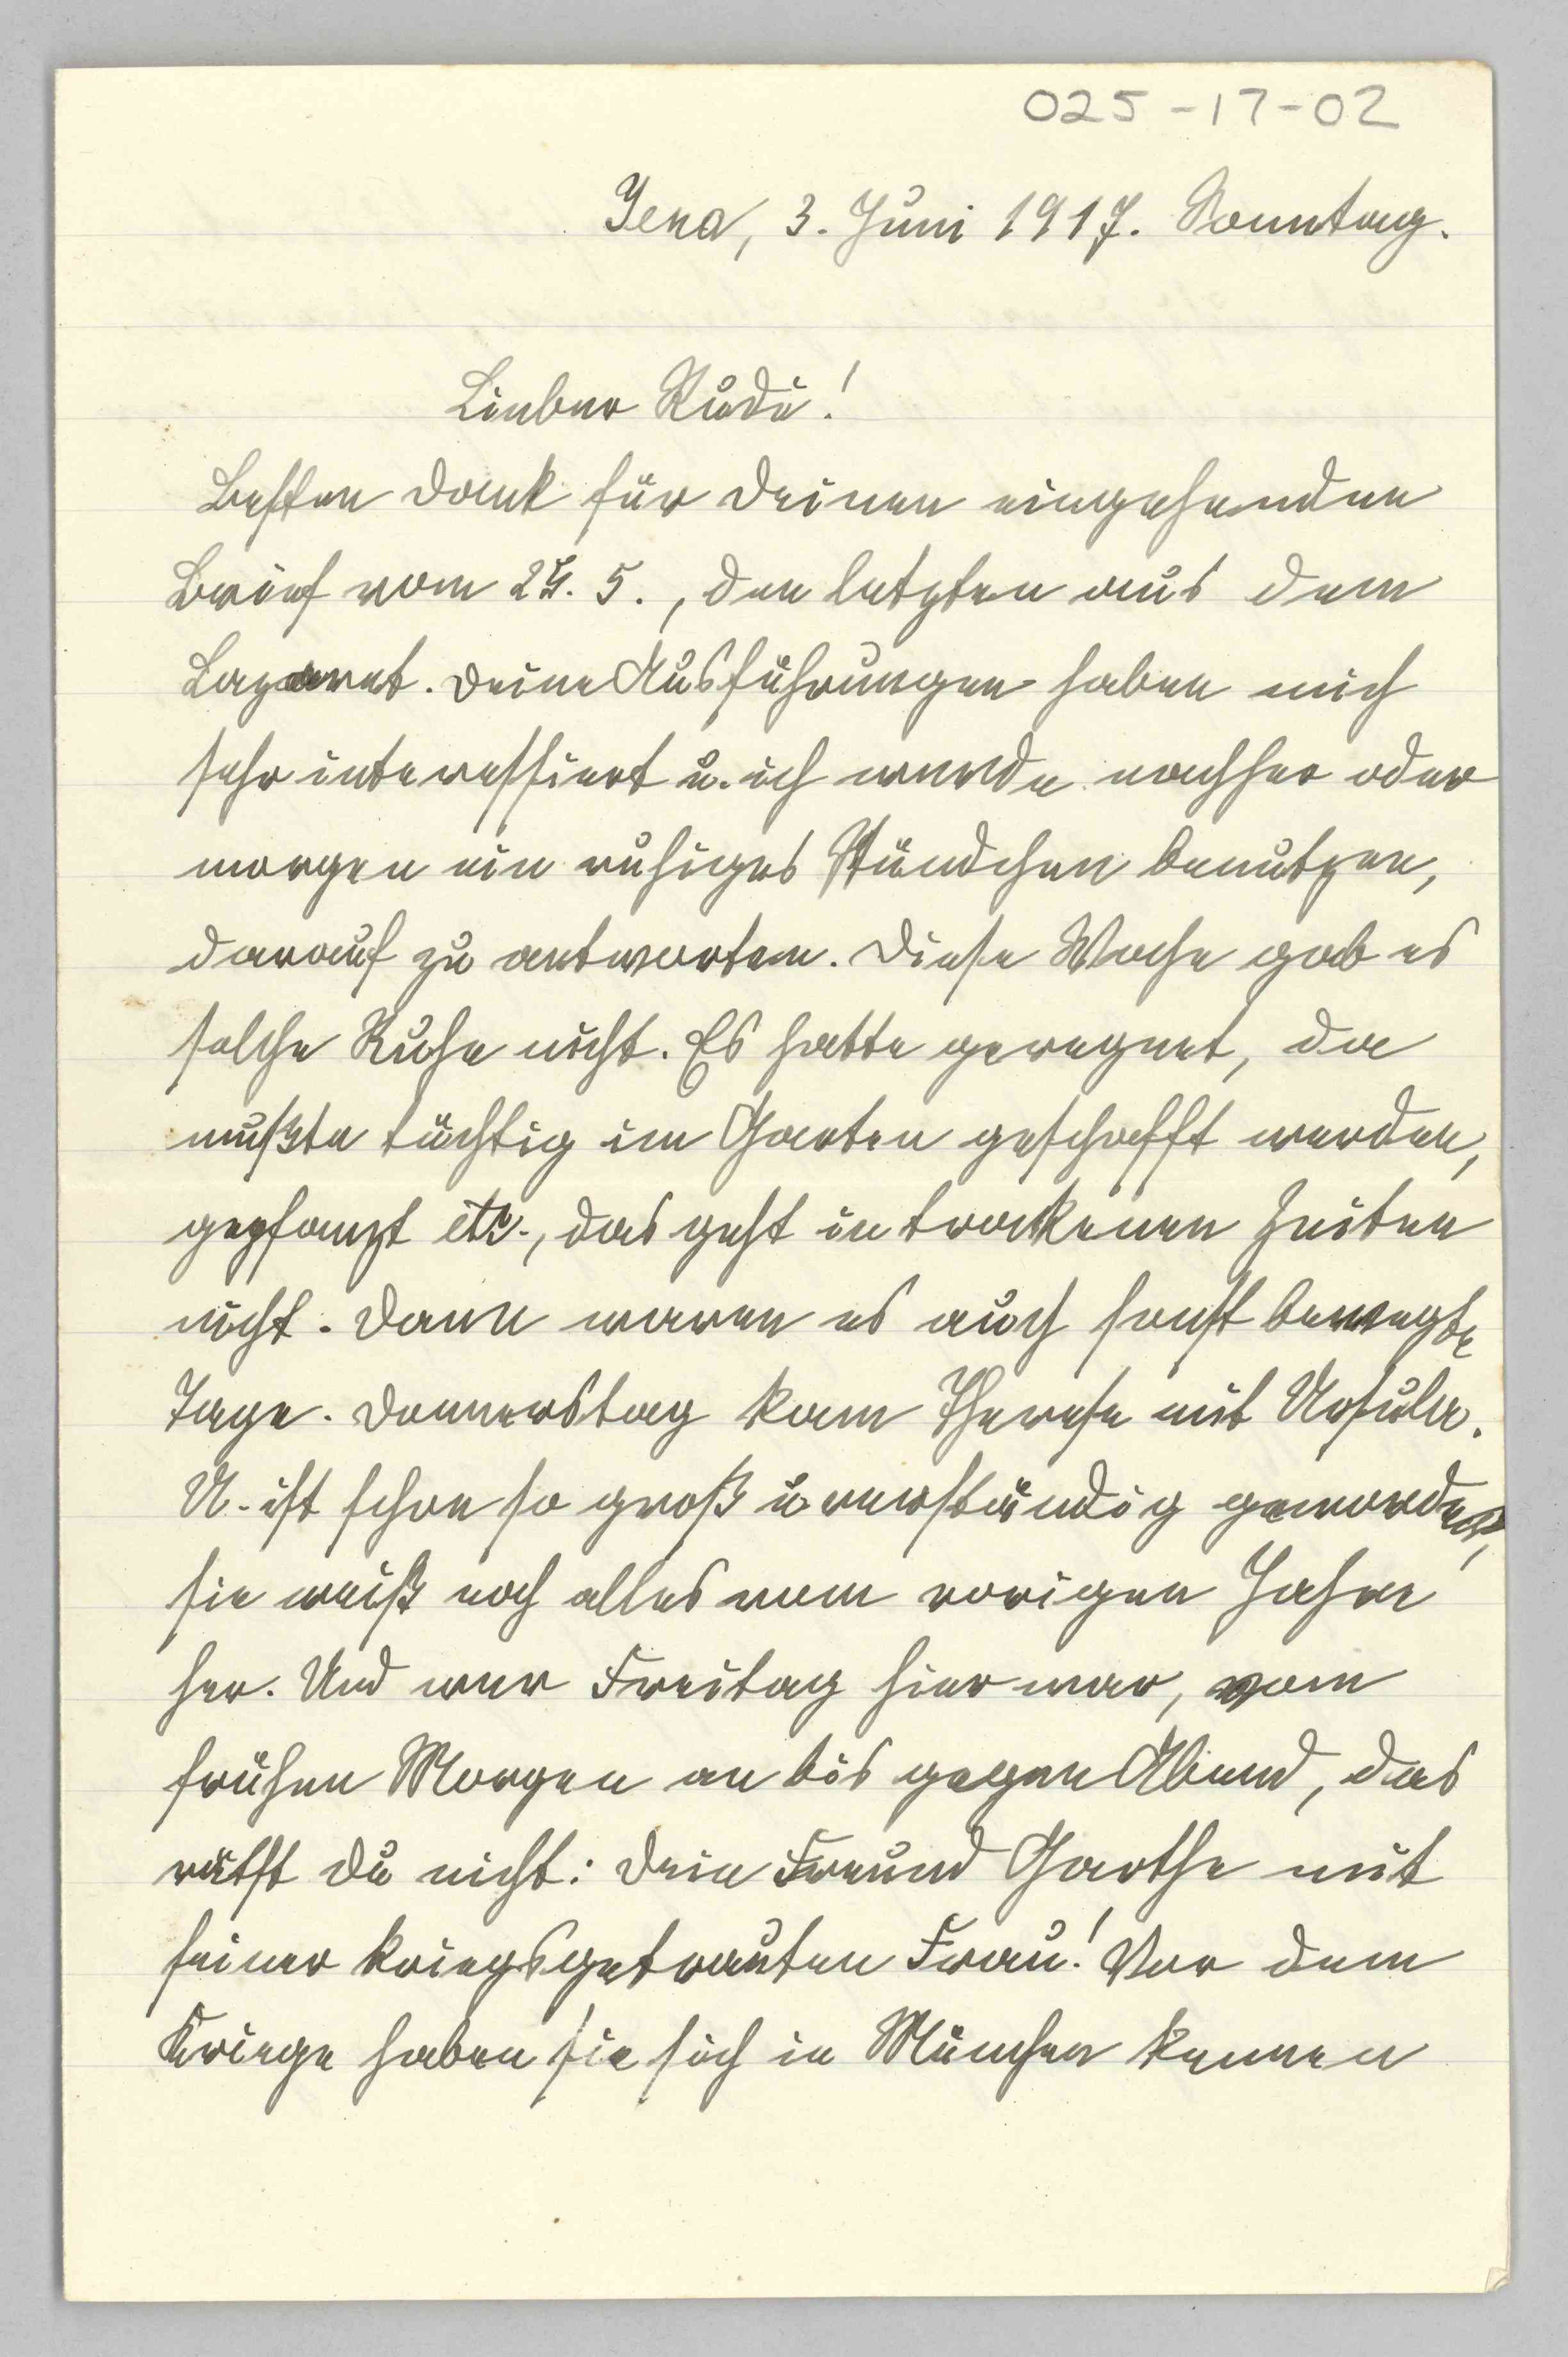 025-17-02
Jena, 3. Juni 1917. Sonntag.
Lieber Rudi!
Besten Dank für Deinen eingehenden
Brief vom 25. 5., den letzten aus dem
Lazaret. Deine Ausführungen haben mich
sehr interessiert u. ich werde nachher oder
morgen ein ruhiges Stündchen benutzen,
darauf zu antworten. Diese Woche gab es
solche Ruhe nicht. Es hatte geregnet, da
mußte tüchtig im Garten geschafft werden,
gepfanzt etc., das geht in trockenen Zeiten
nicht. Dann waren es auch sonst bewegte
Tage. Donnerstag kam Therese mit Ursula.
U. ist schon so groß u verständig geworden,
sie weiß noch alles vom vorigen Jahre
her. Und wer Freitag hier war, vom
frühen Morgen an bis gegen Abend, das
rätst Du nicht: Dein Freund Garthe mit
seiner kriegsgetrauten Frau! Vor dem
Kriege haben sie sich in München kennen